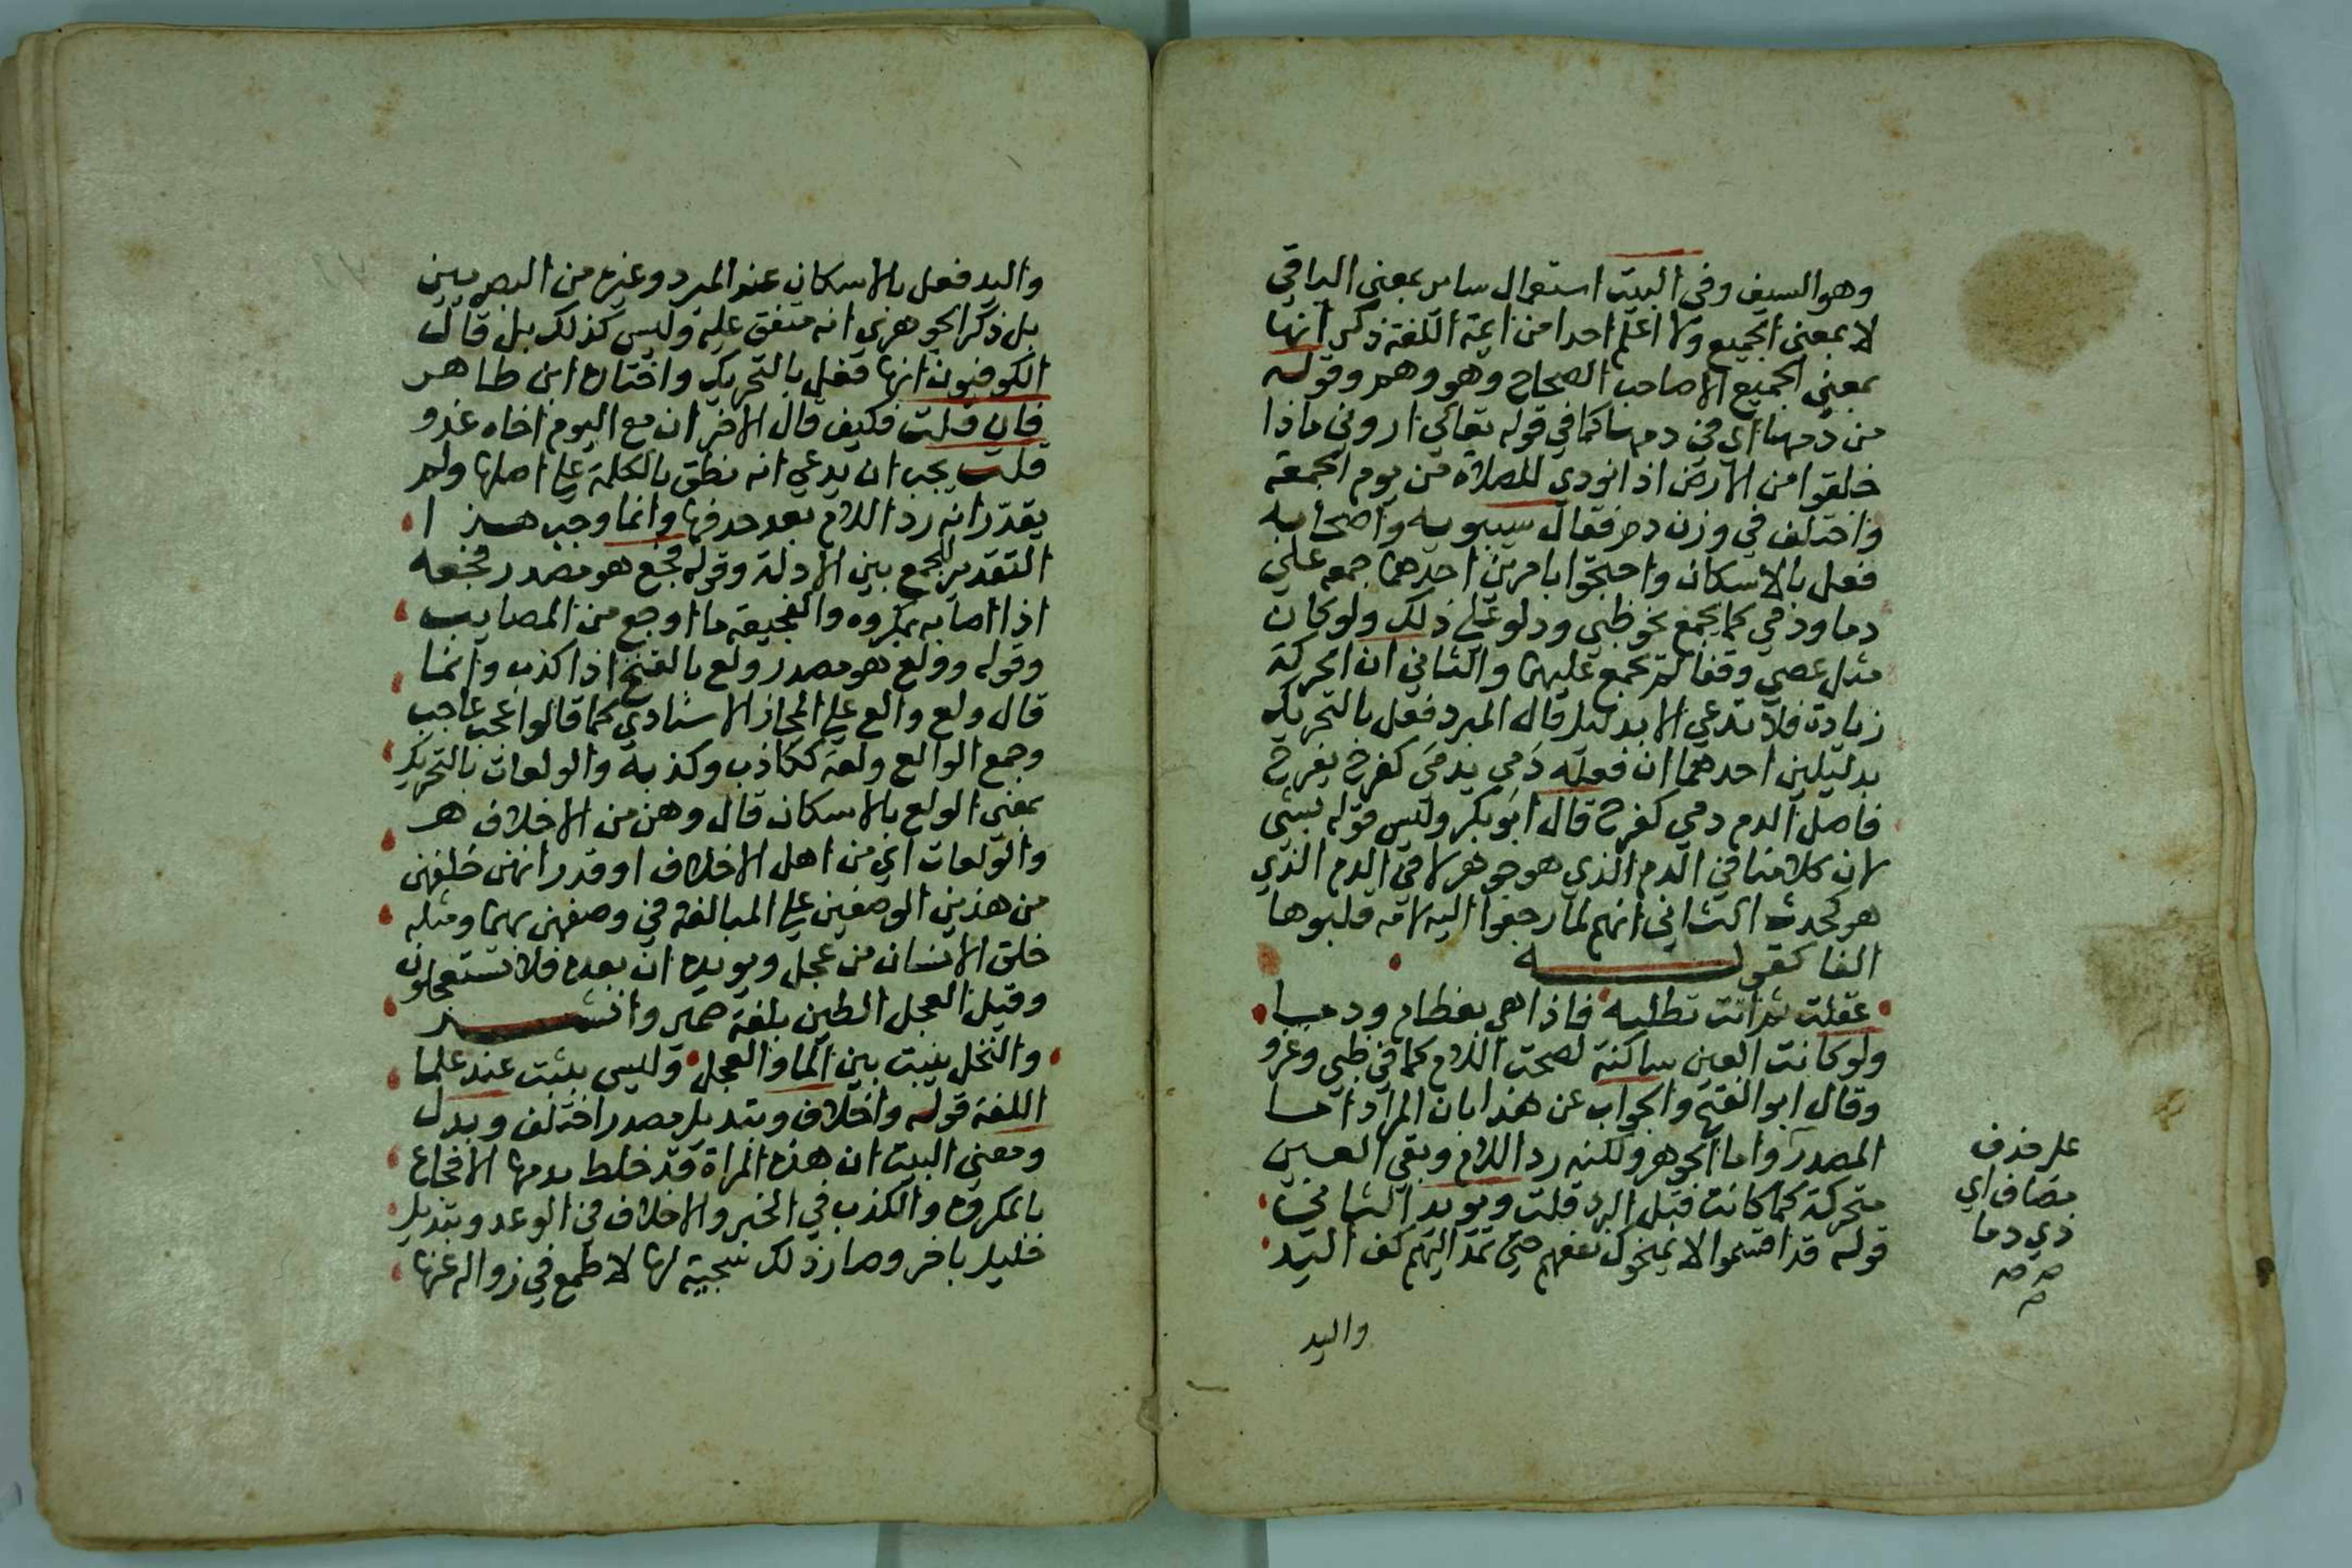 وهو السيف وفي البيت استعمال ساير بمعنى الباقي
لا بمعنى الجميع ولا اعلم احدا من ايمة اللغة ذكر انها
بمعنى الجميع الا صاحب الصحاح وهو وهم وقوله
من دمها اي في دمها كما في قوله تعالي اروني ماذا
خلقوا من الارض اذا نودي للصلاة من يوم الجمعة
واختلف في وزن دم فقال سيبويه واصحابه
فعل بالاسكان واحتجوا بامرين احدهما جمعه علي
دما ودمي كما يجمع نحو ظبي ودلو علي ذلك ولو كان
مثل عصي وقفا لم يجمع عليهما والثاني ان الحركة
زيادة فلا تدعي الا بدليل قال المبرد فعل بالتحريك
بدليلين احدهما ان فعله دَمِي يدمَي كفرح يفرح
فاصل الدم دمي كفرح قال ابو بكر وليس قوله بشي
لان كلامنا في الدم الذي هو جوهر لا في الدم الذي
هو كحدث الثاني انهم لما رجعوا اليه لامه قلبوها
الفا كقوله
عقلت ثم اتت تطلبه فاذا هي بعظام ودما
ولو كانت العين ساكنة لصحت اللام كما في ظبي وغزو
وقال ابو الفتح والجواب عن هذا بان المراد اما
المصدر واما الجوهر ولكنه رد اللام وبقي العين
متحركة كما كانت قبل الرد قلت ويويد الثاني
قوله قد اقسموا لا يمنحوك نفعهم حتي تمد اليهم كف اليد
علي حذف
مضاف اي
ذي دما
واليد
واليد فعل بالاسكان عند المبرد وغيره من البصريين
بل ذكر الجوهري انه متفق عليه وليس كذلك بل قال
الكوفيون انها فعل بالتحريك واختاره ابن طاهر
فان قلت فكيف قال الاخر ان مع اليوم اخاه غدو
قلت يجب ان يدعي انه نطق بالكلمة علي اصلها ولم
يقدر انه رد اللام بعد حذفها وانما وجب هذا
التقدير للجمع بين الادلة وقوله فجع هو مصدر فجعه
اذا اصابه بمكروه والفجيعة ما اوجع من المصايب
وقوله وولع هو مصدر ولع بالفتح اذا كذب وانما
قال ولع والع علي المجاز الاسنادي كما قالوا عجب عاجب
وجمع الوالع ولعة ككاذب وكذبة والولعان بالتحريك
بمعني الولع بالاسكان قال وهن من الاخلاف هم
والولعان اي من اهل الاخلاف او قدر انهن خلقهن
من هذين الوصفين علي المبالغة في وصفهن بهما ومثله
خلق الانسان من عجل ويويده ان بعده فلا تستعجلون
وقيل العجل الطين بلغة حمير وانشد
والنخل ينبت بين الما والعجل وليس بثبت عند علما
اللغة قوله واخلاف وتبديل مصدر اختلف وبدل
ومعني البيت ان هذه المراة قد خلط بدمها الافجاع
بالمكروه والكذب في الخبر والاخلاف في الوعد وتبديل
خليل باخر وصار ذلك سجية لها لا طمع في زواله عنها